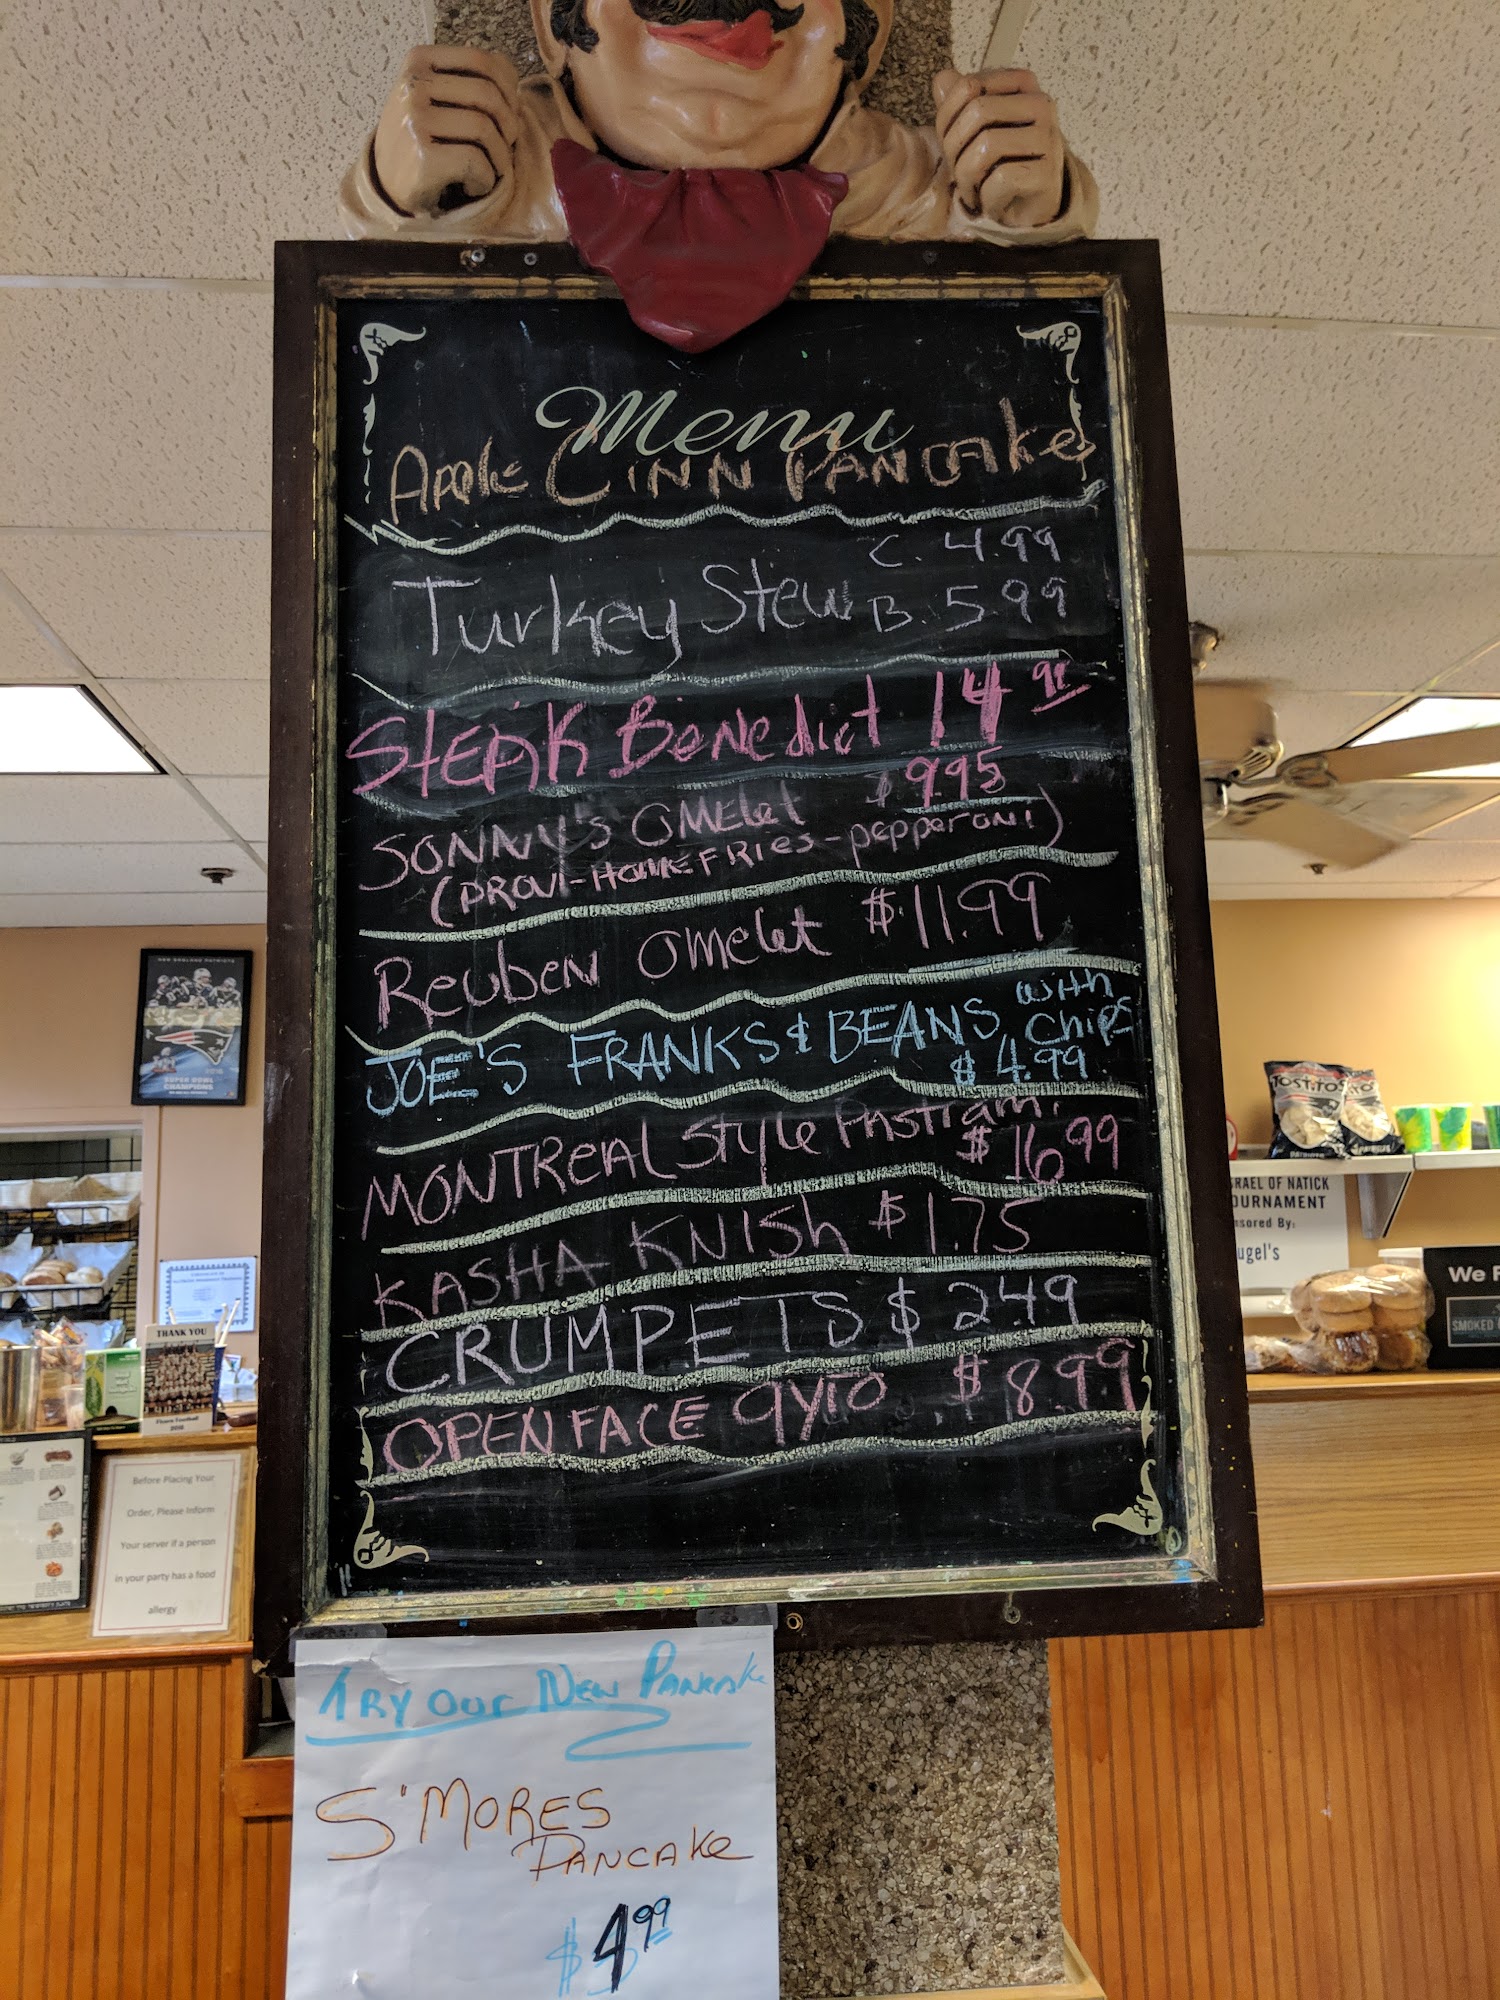 Menu
Apple Cinn Pancakes
Turkey Stew C. 4.99
B. 5.99
Steak Benedict 14
Sonny's Omelet $9.95
(Provi-Home Fries-pepperoni)
Reuben Omelet $11.99
Joe's Franks & Beans with
Chips
$4.99
Montreal Style Pastrami
$16.99
Kasha Knish $1.75
Crumpets $2.49
Open Face Gyro $8.99
Try our New Pancake
S'mores
Pancake
$4.99
NEW ENGLAND PATRIOTS
SUPER BOWL
CHAMPIONS
THANK YOU
Before Placing Your
Order, Please Inform
Your server if a person
in your party has a food
allergy
TOSTITOS
RAEL OF NATICK
OURNAMENT
nsored By:
ugel's
We
SMOKED